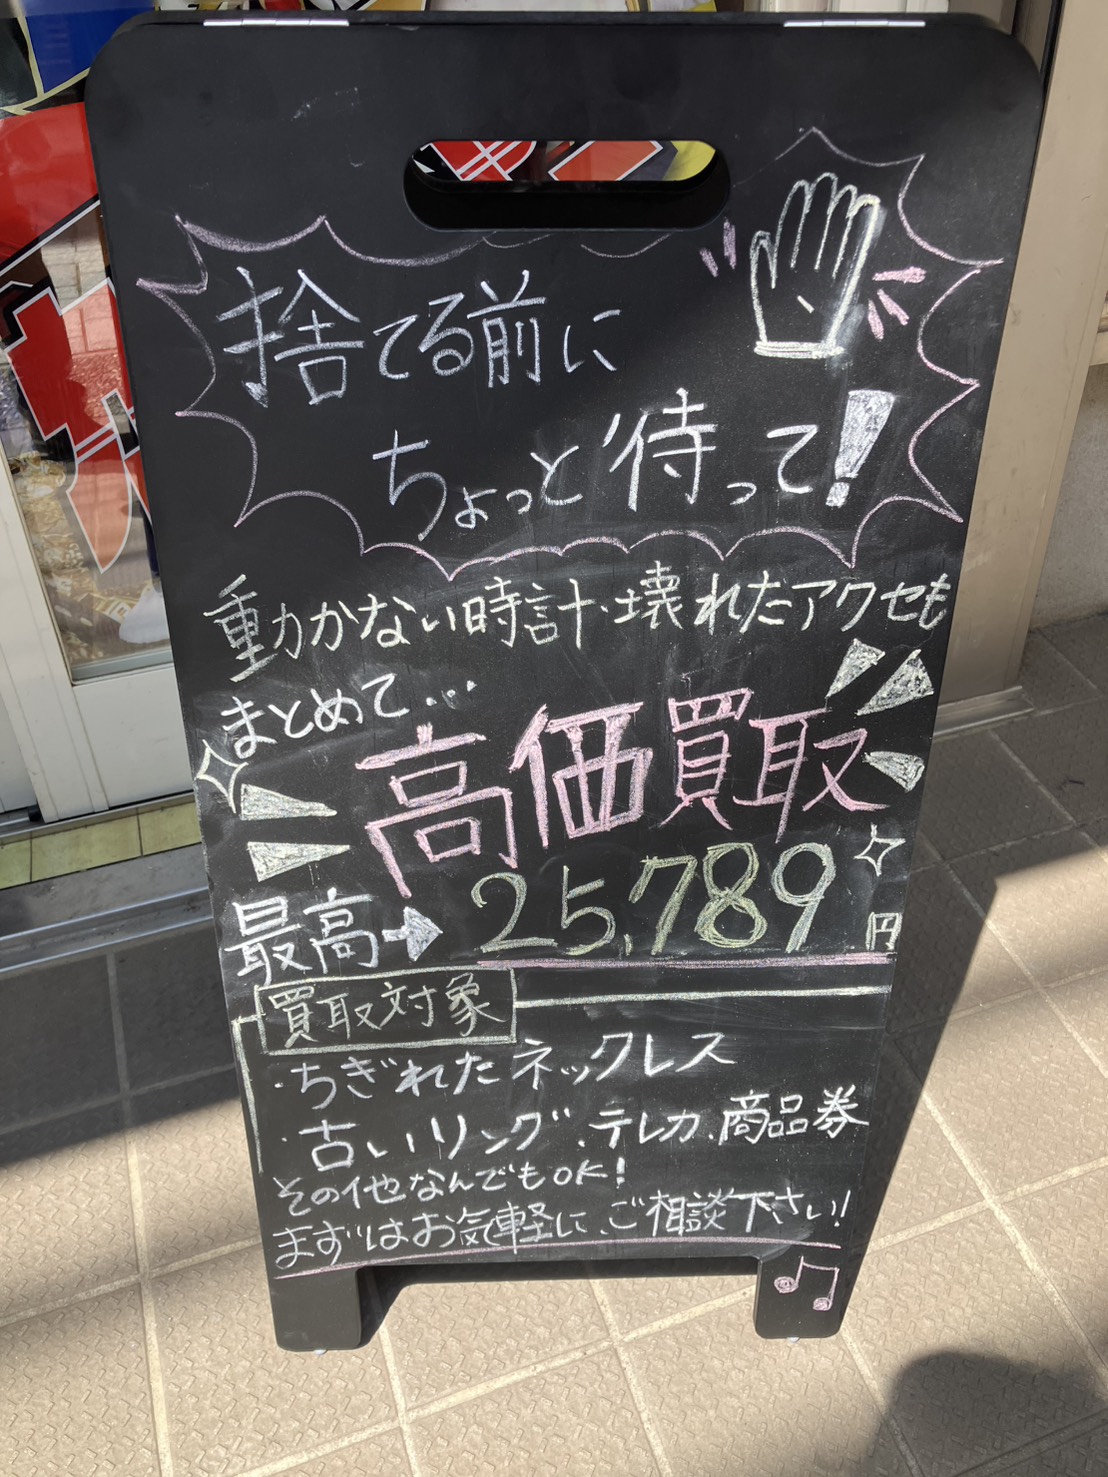 捨てる前に
ちょっと待って!
動かない時計・壊れたアクセも
まとめて...
高価買取
最高→ 25,789円
買取対象
・ちぎれたネックレス
・古いリング、テレカ、商品券
その他なんでもOK!
まずはお気軽に、ご相談下さい!